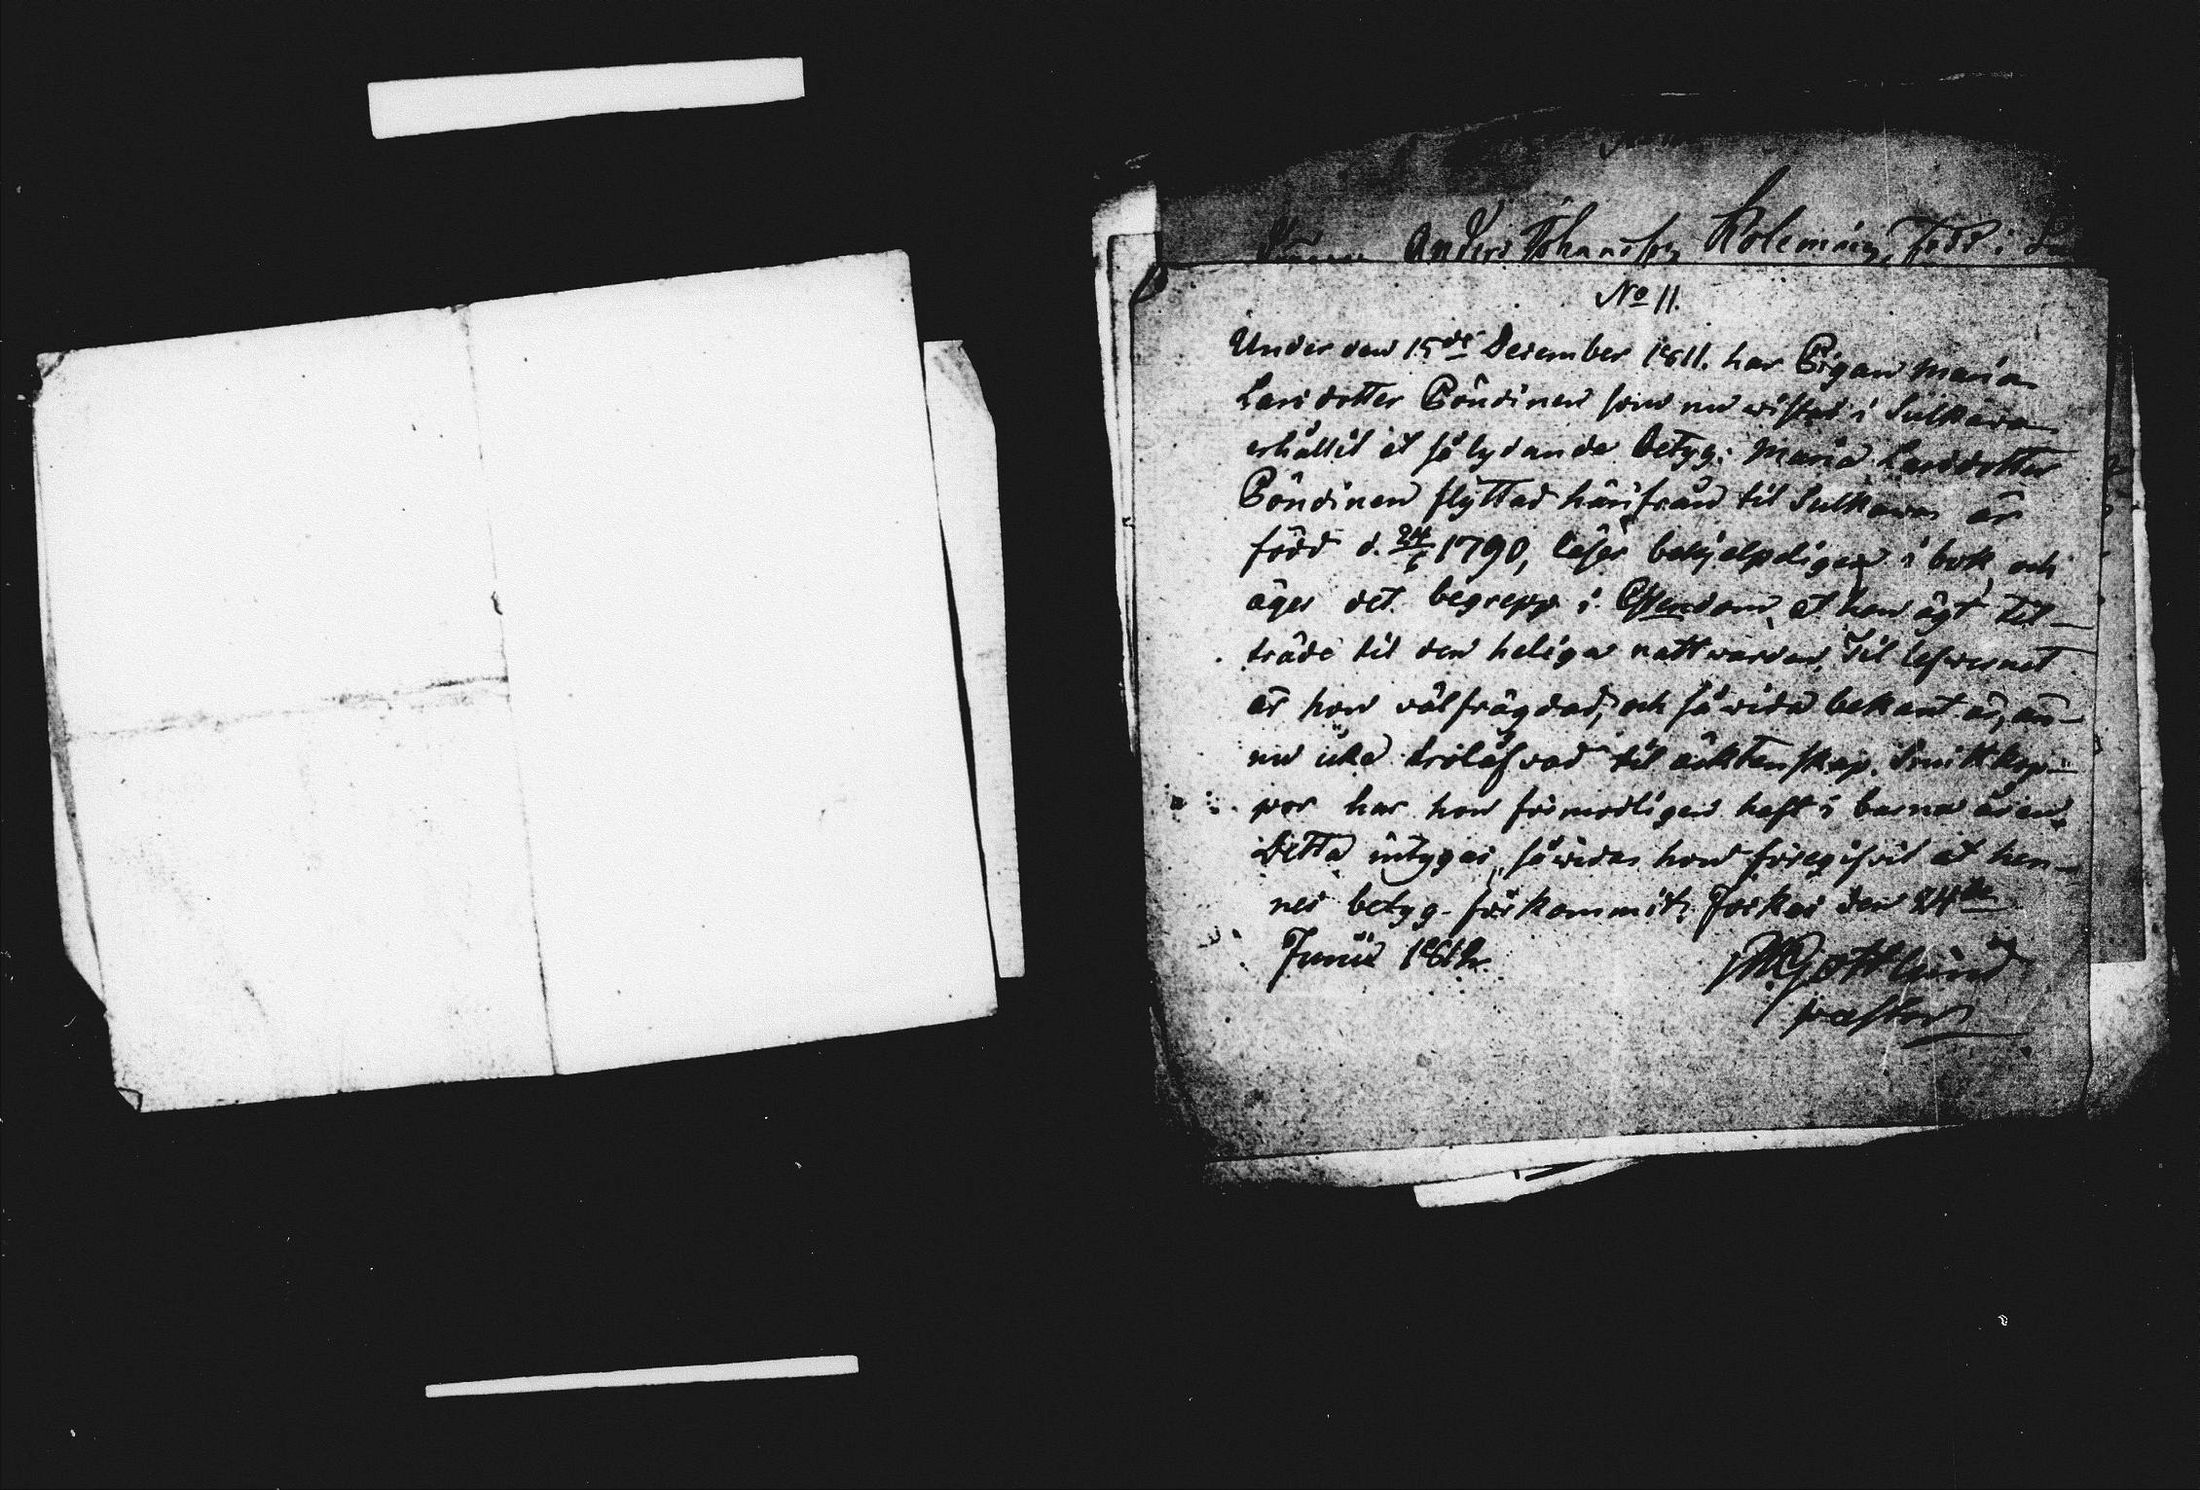 Anders Johansson Kolemain, född i
No 11.
Under den 15de December 1811. har Pigan Maria
Larsdotter Pöndinen som nu wistas i Sulkava
erhållit et så lydande betyg: Maria Larsdotter
Pöndinen flyttad härifrån til Sulkava är
född d. 24/6 1790, läser behjelpeligen i bok och
äger det begrepp i Christendom, at hon ägt til-
träde til den heliga nattvarden. Til lefvernet
är hon välfrägdad, och så vida bekant är, än-
nu icke trolåfvad til äcktenskap. Smittkop-
por har hon förmodligen haft i barna åren.
Detta intygas, så vida hon föregifvit at hen-
nes betyg förkommit. Jockas den 24de
Junii 1812.
M Gottlund
pastor